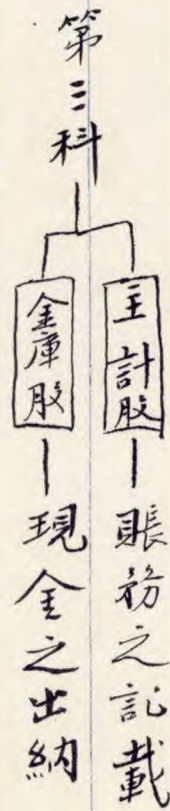 第三科
主計股
賬務之記載
金庫股
現金之出納